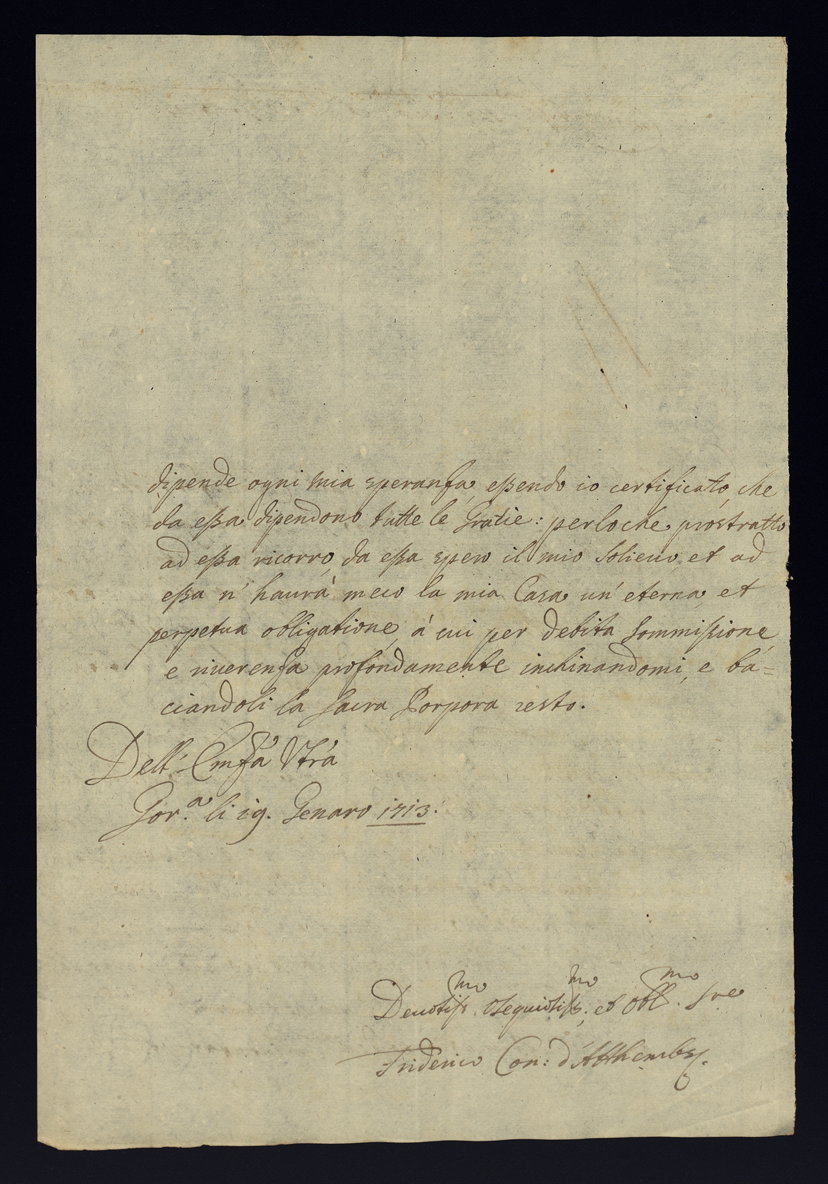 dipende ogni mia speranza essendo io certificato, che
da essa dipendono tutte le Gratie: perloche prostratto
ad essa ricorro, da essa spero il mio solievo, et ad
essa n'haurà meco la mia Casa un'eterna, et
perpetua obligatione, à cui per debita sommissione,
e riverenza profondamente inchinandomi, e ba=
ciandoli la sacra Porpora resto.
Dell' Emza Vrã
Gor.a li 19. Genaro 1713.
Devotissmo osequiosissmo, et Obllmo. Sre
Friderico Con: d'Atthembs.